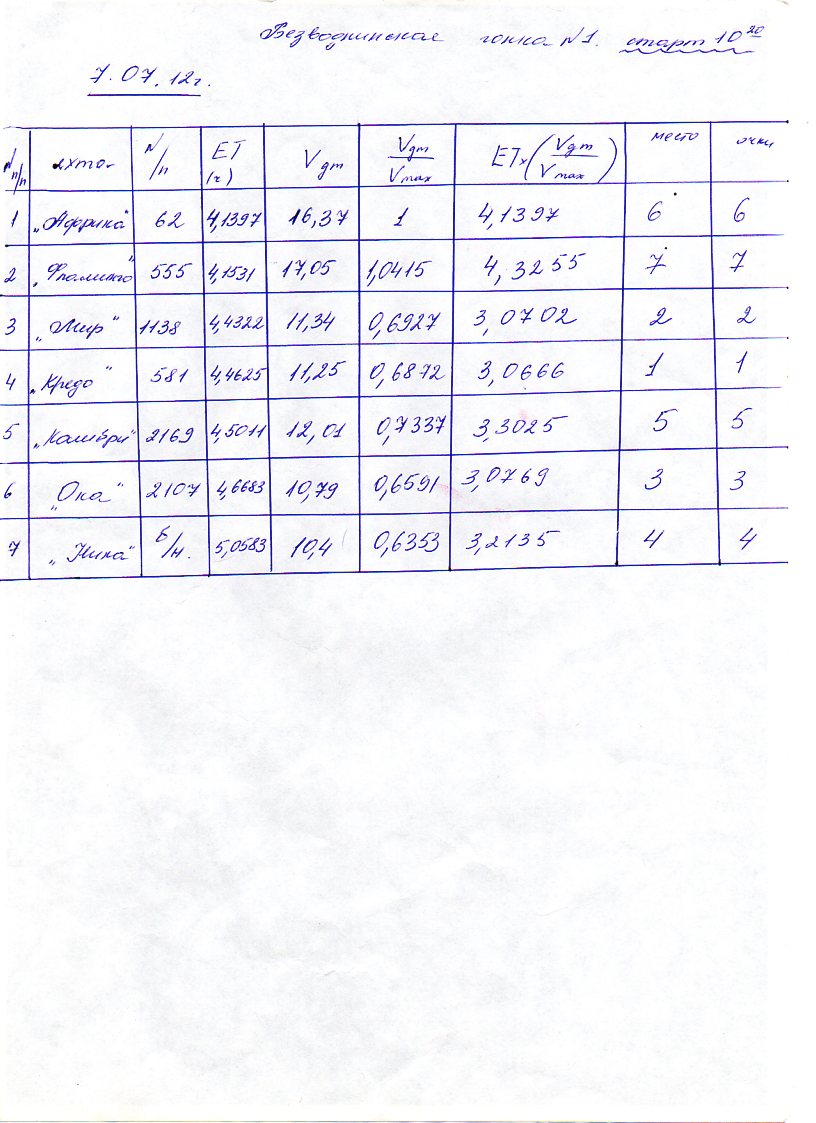 Безводнинская гонка N1. старт 10 20
7.07.12г.
N п/п яхта N/п ET (ч) Vдт Vдт/Vmax ETx(Vдт/Vmax) место очки
1 „Африка" 62 4,1397 16,37 1 4,1397 6 6
2 „Фламинго" 555 4,1531 17,05 1,0415 4,3255 7 7
3 „Мир" 1138 4,4322 11,34 0,6927 3,0702 2 2
4 „Кредо" 581 4,4625 11,25 0,6872 3,0666 1 1
5 „Калибри" 2169 4,5011 12,01 0,7337 3,3025 5 5
6 „Ока" 2107 4,6683 10,79 0,6591 3,0769 3 3
7 „Ника" б/н. 5,0583 10,4 0,6353 3,2135 4 4